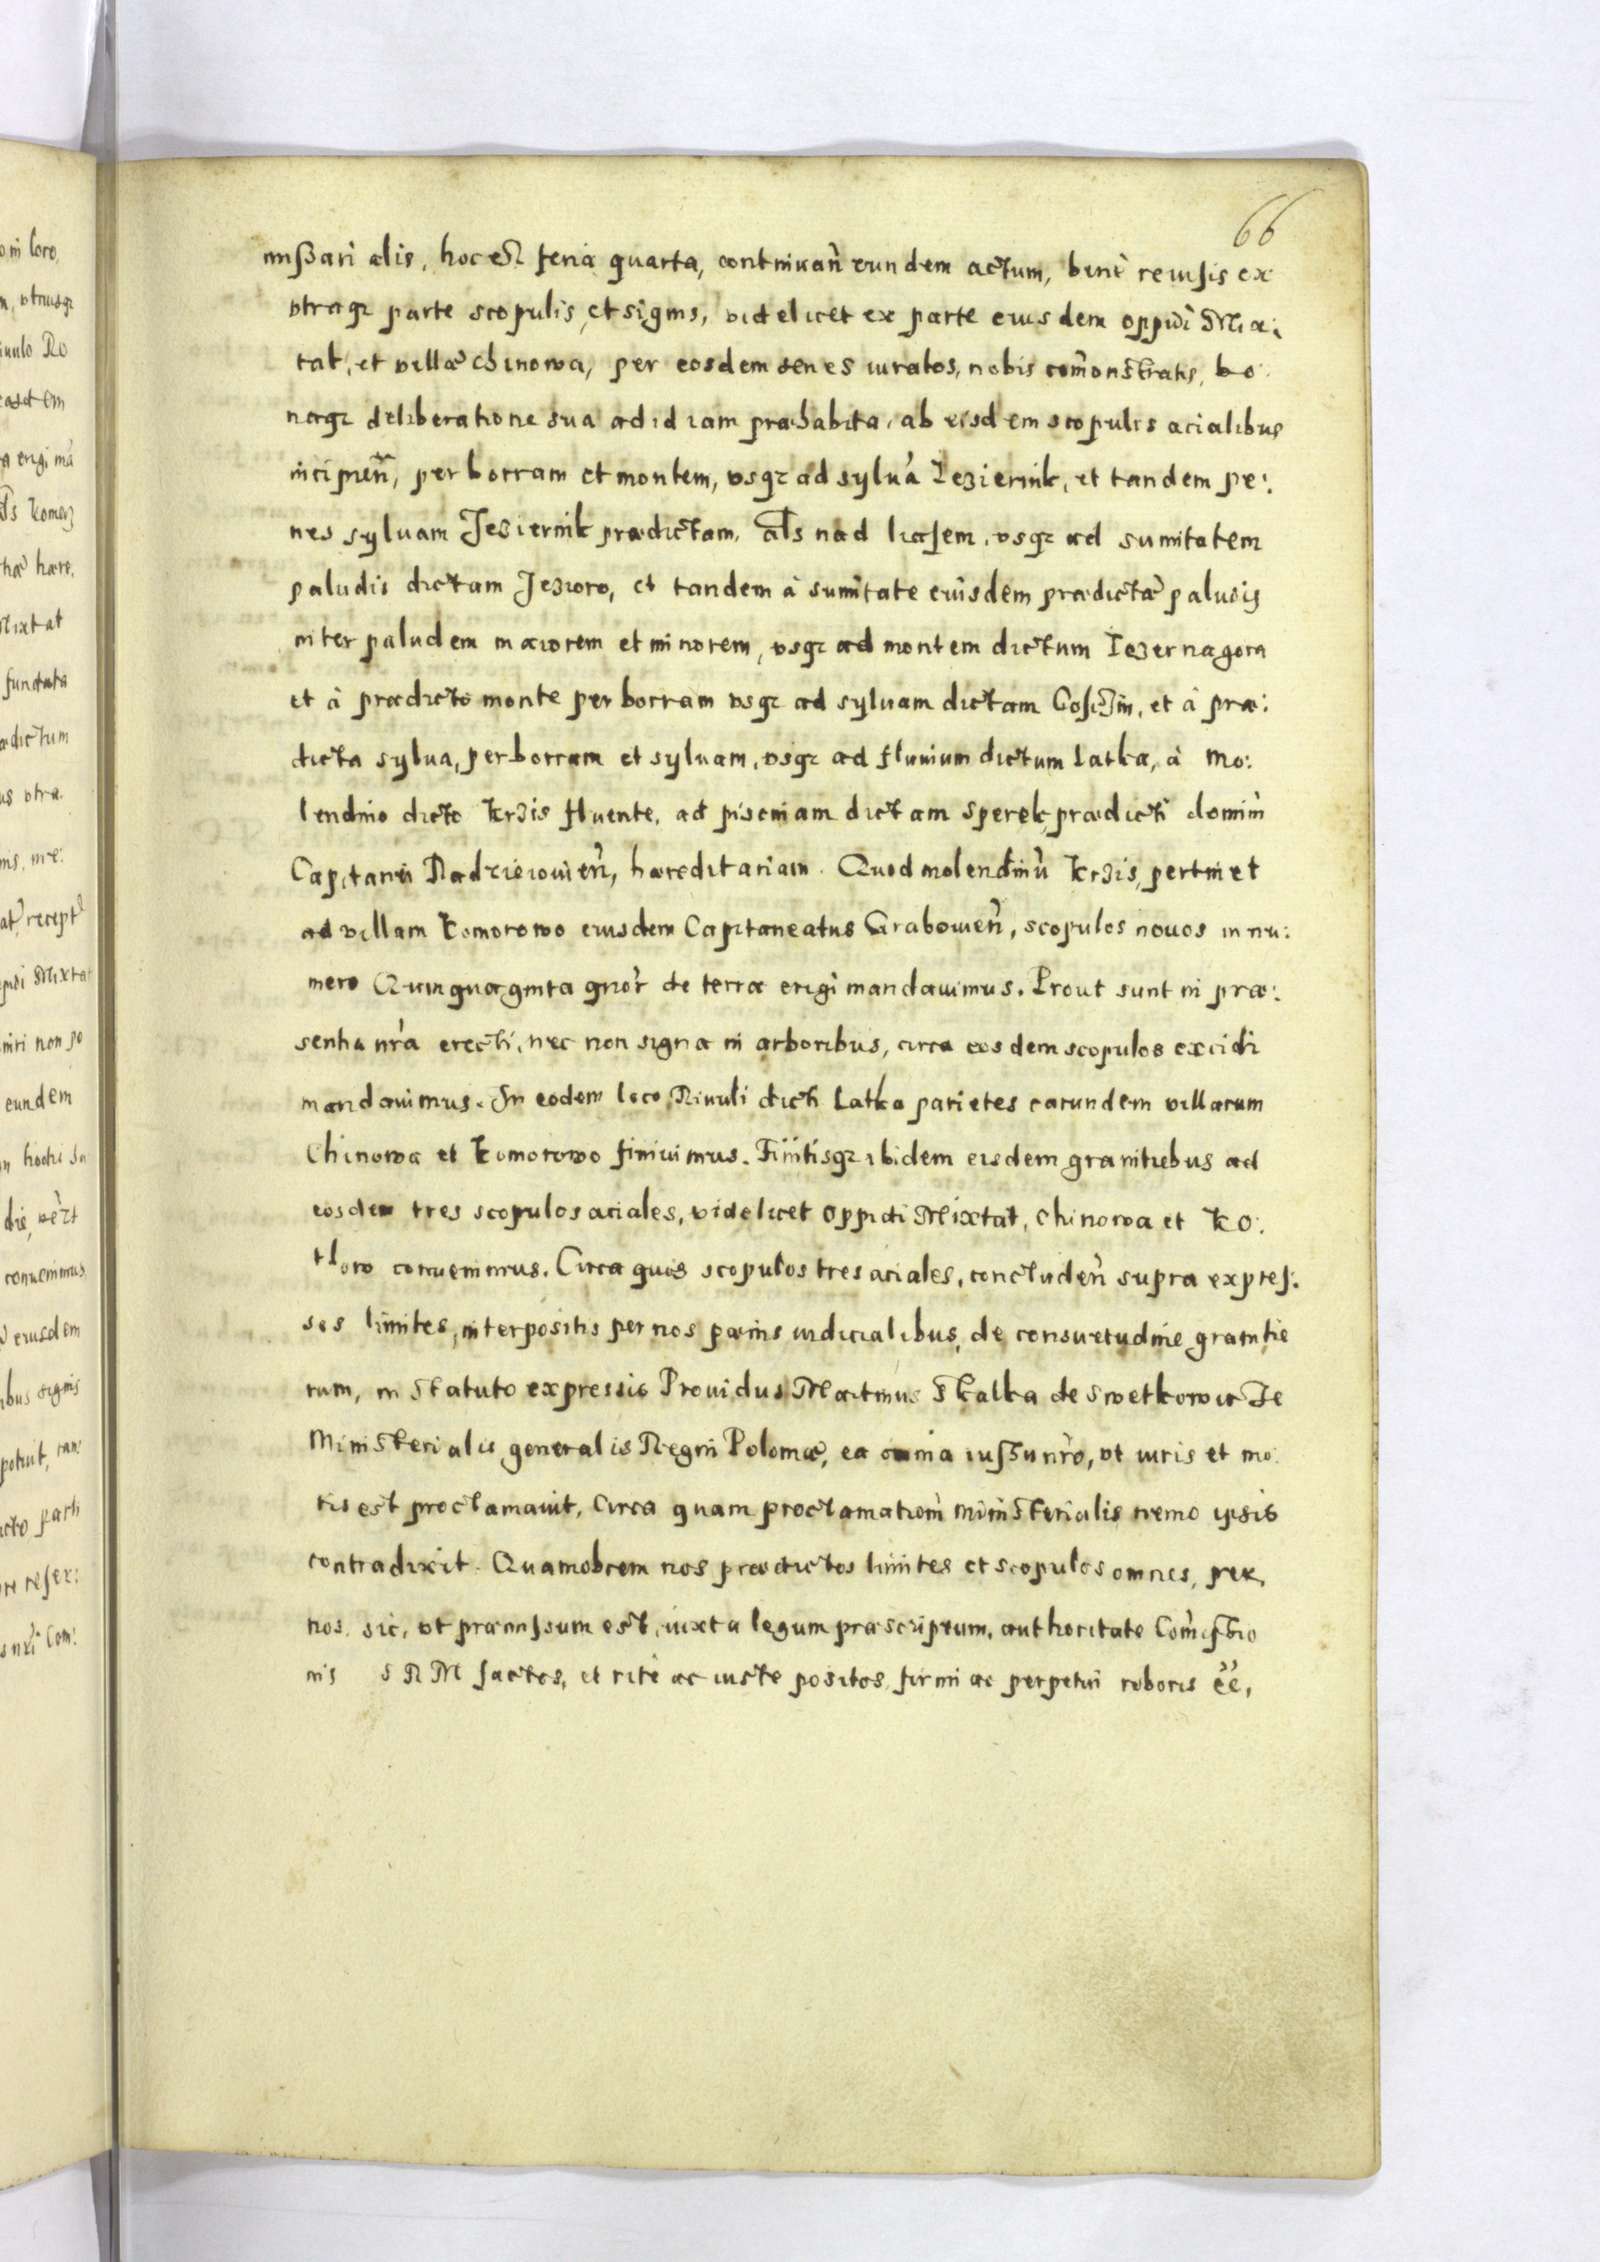 66
missarialis, hoc est feria quarta, continuañ eundem actum, bene reuisis ex
vtraqȝ parte scopulis et signis, videlicet ex parte eiusdem oppidi Mix:
tat, et villæ Chinowa, per eosdem senes iuratos, nobis com̃onstratis, bo:
naqȝ deliberatione sua ad id iam præhabita, ab eisdem scopulis acialibus
incipieñ, per borram et montem, vsqȝ ad syluã Ieziernik, et tandem pe:
nes syluam Jeziernik prædictam, als nad liasem, vsqȝ ad sumitatem
paludis dictam Jezioro, et tandem à sumitate eiusdem prædictæ paludis
inter paludem maiorem et minorem, vsqȝ ad montem dictum Iezernagora
et à prædicto monte per borram vsqȝ ad syluam dictam, et à præ:
dicta sylua, per borram et syluam, vsqȝ ad fluuium dictum Latka, à mo:
lendino dicto Krzis fluente, ad piscinam dictam Sperek, prædicti domini
Capitanei Radzieiouieñ, hæreditariam. Quod molendinũ Krzis, pertinet
ad villam Komorowo eiusdem Capitaneatus Grabouieñ, scopulos nouos in nu:
mero Quinquaginta qũor de terra erigi mandauimus. Prout sunt in præ:
sentia nr̃a erecti, nec non signa in arboribus, circa eosdem scopulos excidi
mandauimus. In eodem loco Riuuli dicti Latka parietes earundem villarum
Chinowa et Komorowo finiuimus. Finitisqȝ ibidem eisdem granitiebus ad
eosdem tres scopulos aciales, videlicet oppidi Mixtat, Chinowa et Ko:
tloro conuenimus. Circa quos scopulos tres aciales, concludeñ supra expres:
sos limites, interpositis per nos pænis iudicialibus, de consuetudine granitie
rum, in statuto expressis Prouidus Martinus Skalka de Swetkowicze
Ministerialis generalis Regni Poloniæ, ea omnia iussu nr̃o, vt iuris et mo:
ris est proclamauit, Circa quam proclamationẽ Ministerialis nemo ipsis
contradixit. Quamobrem nos prædictos limites et scopulos omnes, per
nos, sic, vt præmissum est, iuxta legum præscriptum, authoritate Com̃issio
nis S R M factos, et ritè ac iuste positos, firmi ac perpetui roboris ẽẽ,